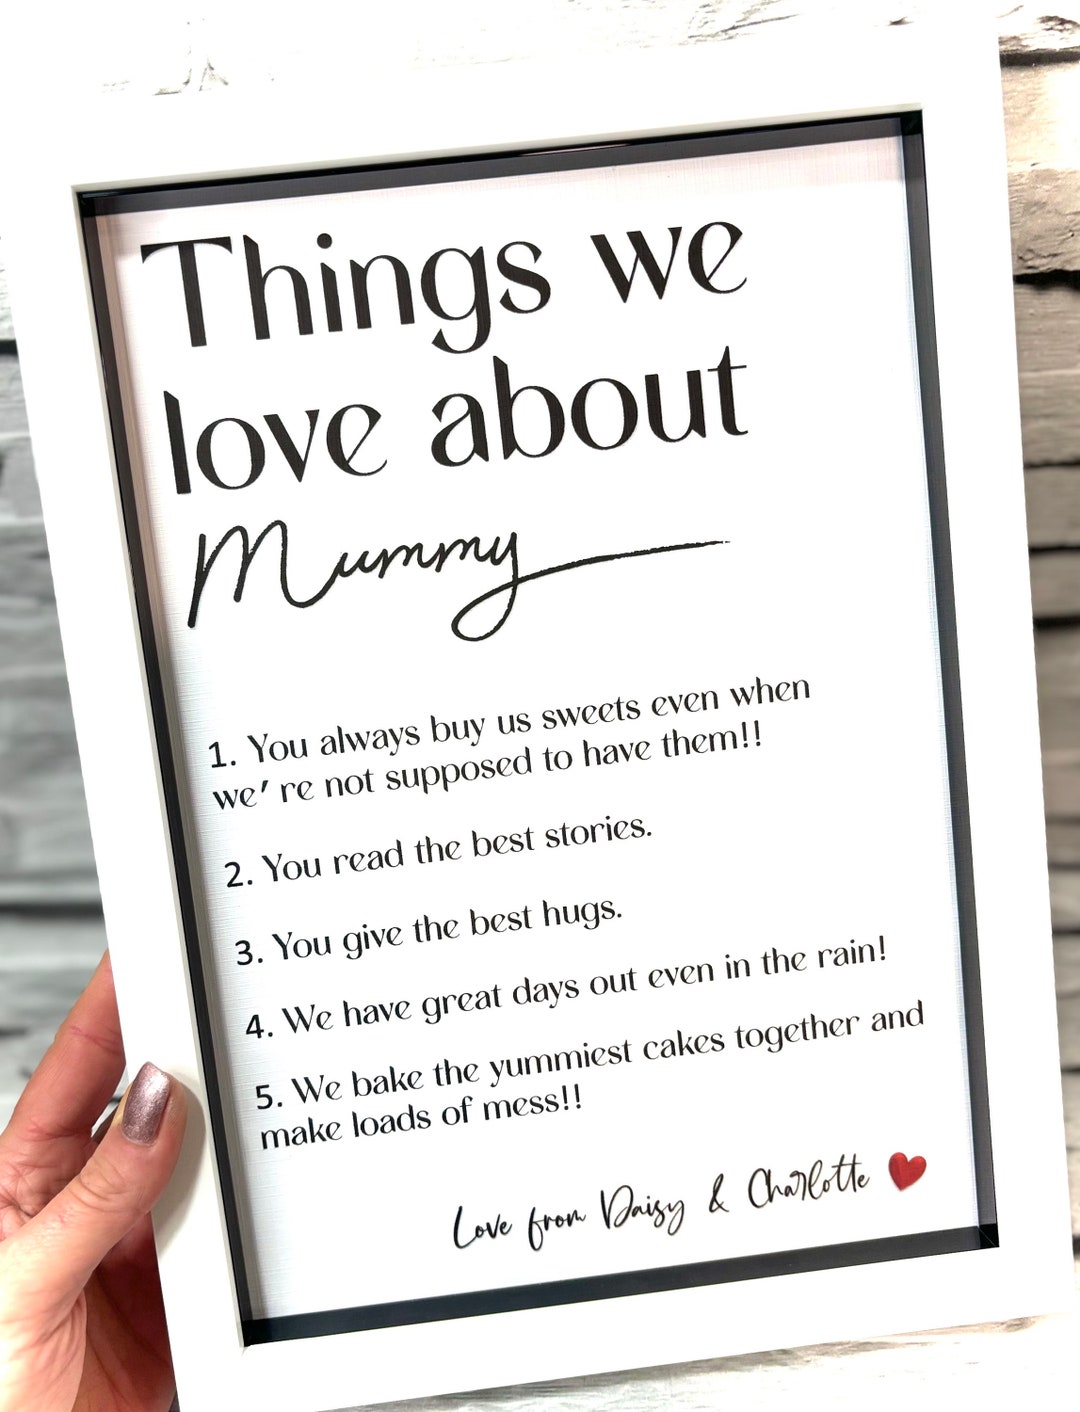 Things we
love about
Mummy
1. You always buy us sweets even when
we're not supposed to have them!!
2. You read the best stories.
3. You give the best hugs.
4. We have great days out even in the rain!
5. We bake the yummiest cakes together and
make loads of mess!!
Love from Daisy & Charlotte ❤